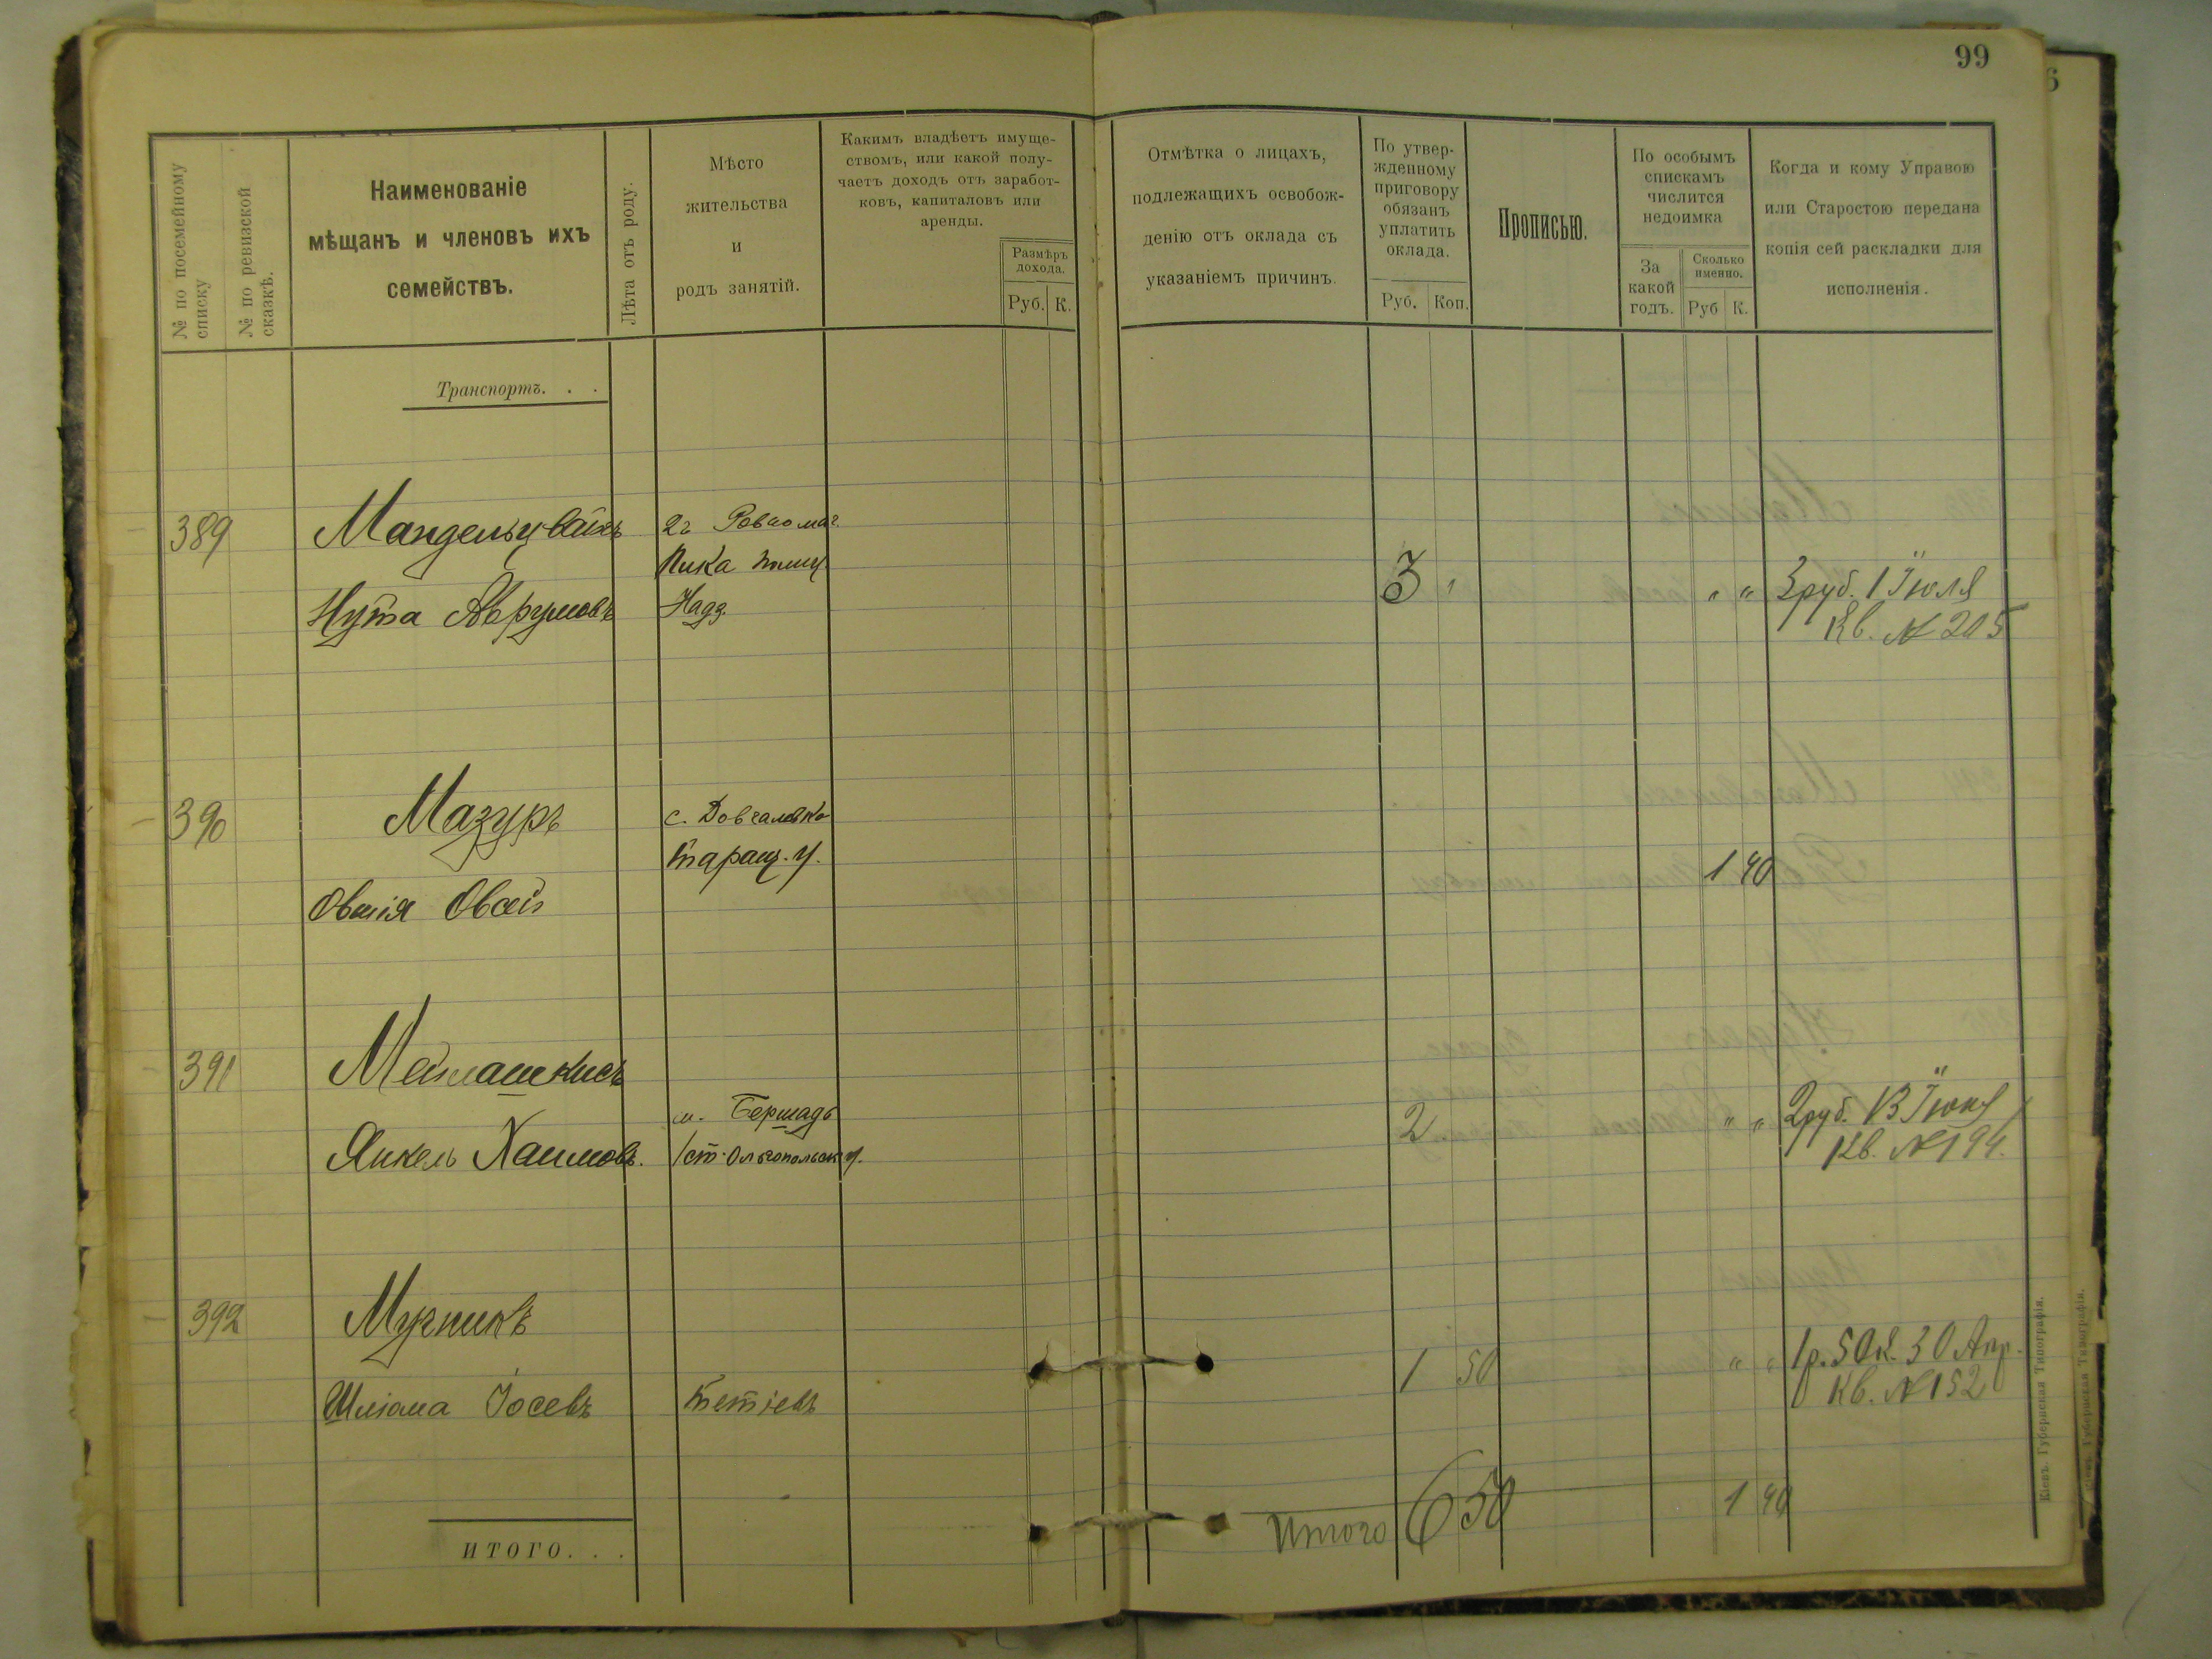 99
№ по посемейному списку
№ по ревизской сказкѣ.
Наименованіе
мѣщанъ и членовъ ихъ
семействъ.
Лѣта отъ роду.
Мѣсто
жительства
и
родъ занятій.
Какимъ владѣетъ имуще-
ствомъ, или какой полу-
чаетъ доходъ отъ заработ-
ковъ, капиталовъ или
аренды.
Размѣръ
дохода.
Руб. К.
Отмѣтка о лицахъ,
подлежащихъ освобож-
денію отъ оклада съ
указаніемъ причинъ.
По утвер-
жденному
приговору
обязанъ
уплатить
оклада.
Руб. Коп.
Прописью.
По особымъ
спискамъ
числится
недоимка
За
какой
годъ.
Сколько
именно.
Руб К.
Когда и кому Управою
или Старостою передана
копія сей раскладки для
исполненія.
Транспортъ. . .
389 Мандельцвайгъ
Нута Аврумовъ
3 " " " 3 руб. 1 Іюля
Кв. № 205
390 Мазуръ с. Довгалевка
Таращ. у.
Овшія Овсей
1 40
391 Мейлашкисъ
м. Бершадь
Янкель Хаимовъ. Ольгопольск у.
2 " " 2 руб. 13 Іюня
Кв. № 194.
392 Мучникъ
Шліома Іосевъ Тетіевъ
1 50 " " 1 р. 50 к. 30 Апр.
Кв. № 152
Итого 6 50 1 40
ИТОГО. . .
Кіевъ. Губернская Типографія.